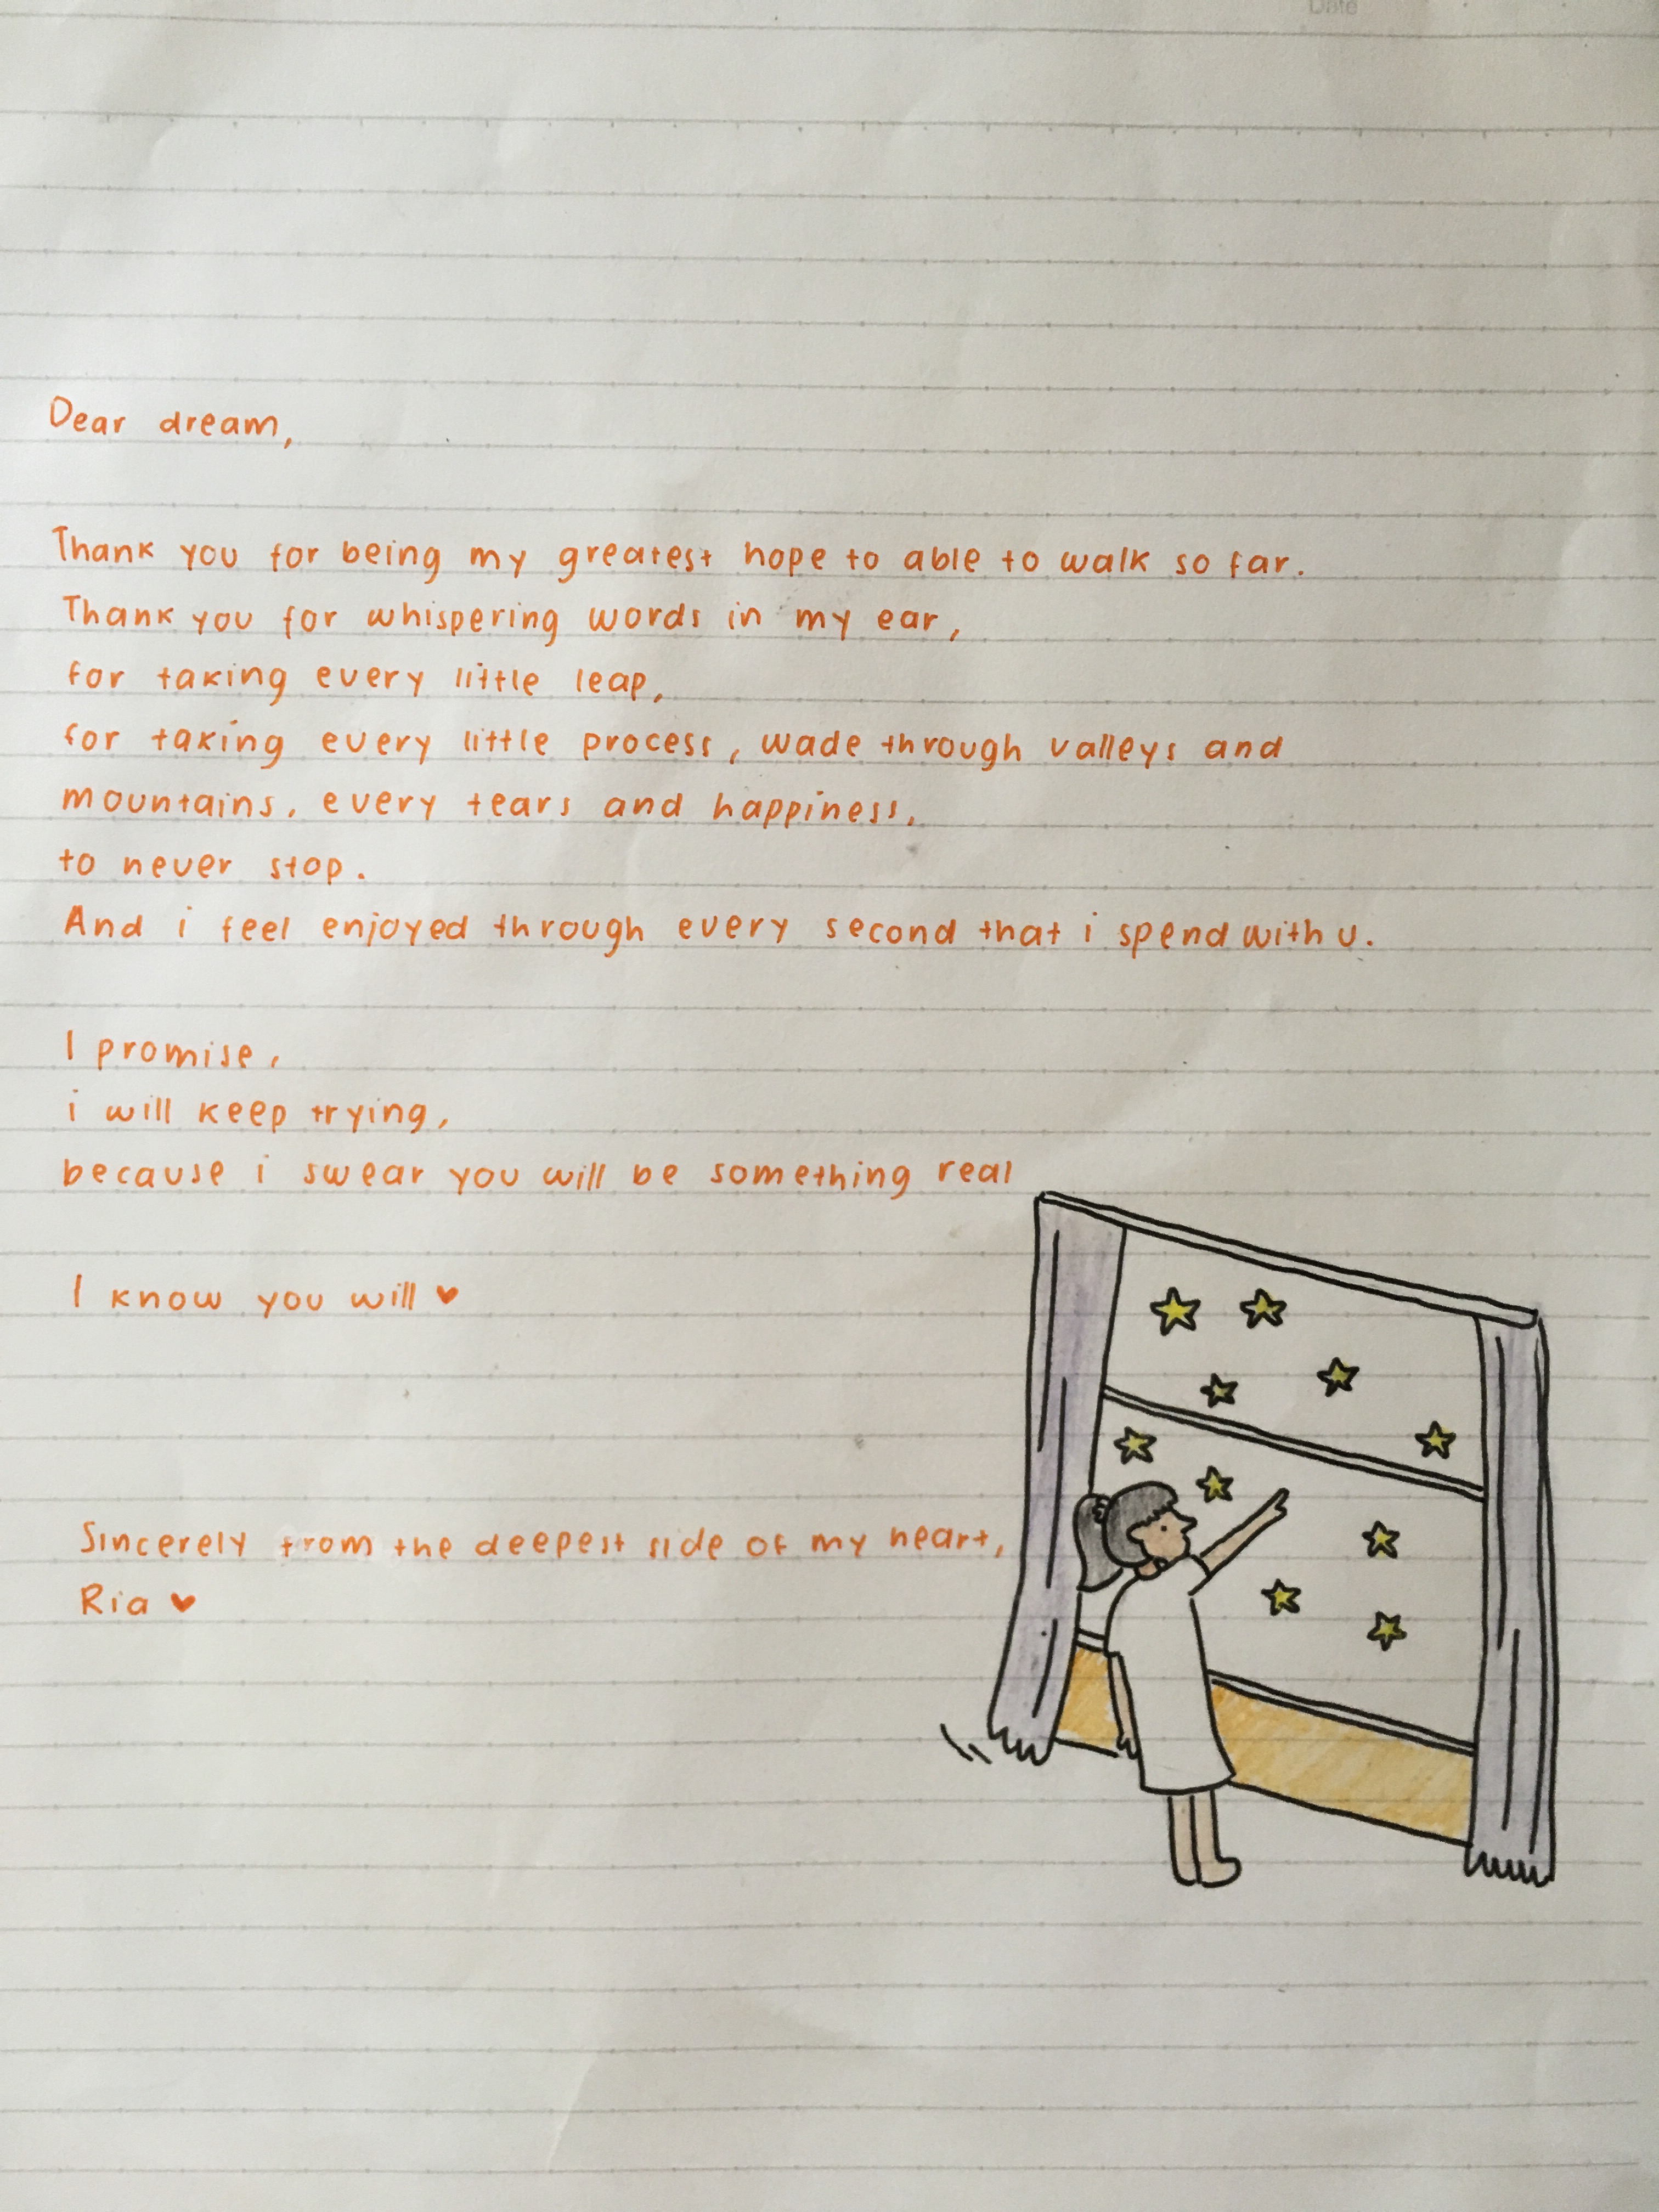 Date
Dear dream,
Thank you for being my greatest hope to able to walk so far.
Thank you for whispering words in my ear,
for taking every little leap,
for taking every little process, wade through valleys and
mountains, every tears and happiness,
to never stop.
And i feel enjoyed through every second that i spend with u.
I promise,
i will keep trying,
because i swear you will be something real
I know you will ♥
Sincerely from the deepest side of my heart,
Ria ♥